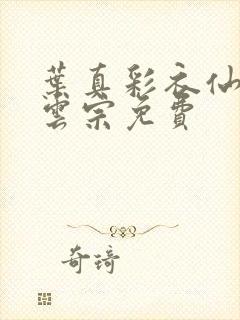 葉真彩衣仙
雲宗免費
奇琦